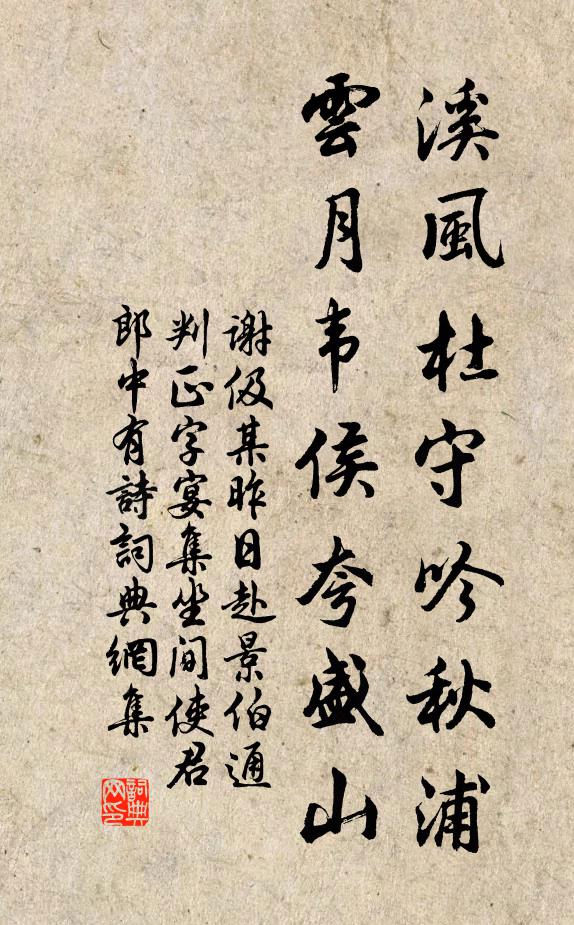 溪風杜守吟秋浦
雲月韦侯夸盛山
谢伋某昨日赴景伯通
判正字宴集坐间使君
郎中有詩詞典網集
詞典
网印